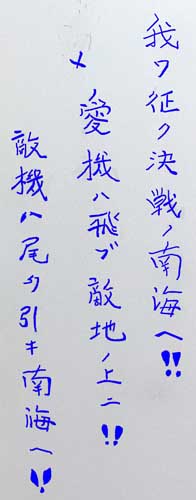 我ワ征ク決戦ノ南海ヘ!!
メノ愛機ハ飛ブ敵地ノ上ニ!!
敵機ハ尾ヲ引キ南海ヘ!!